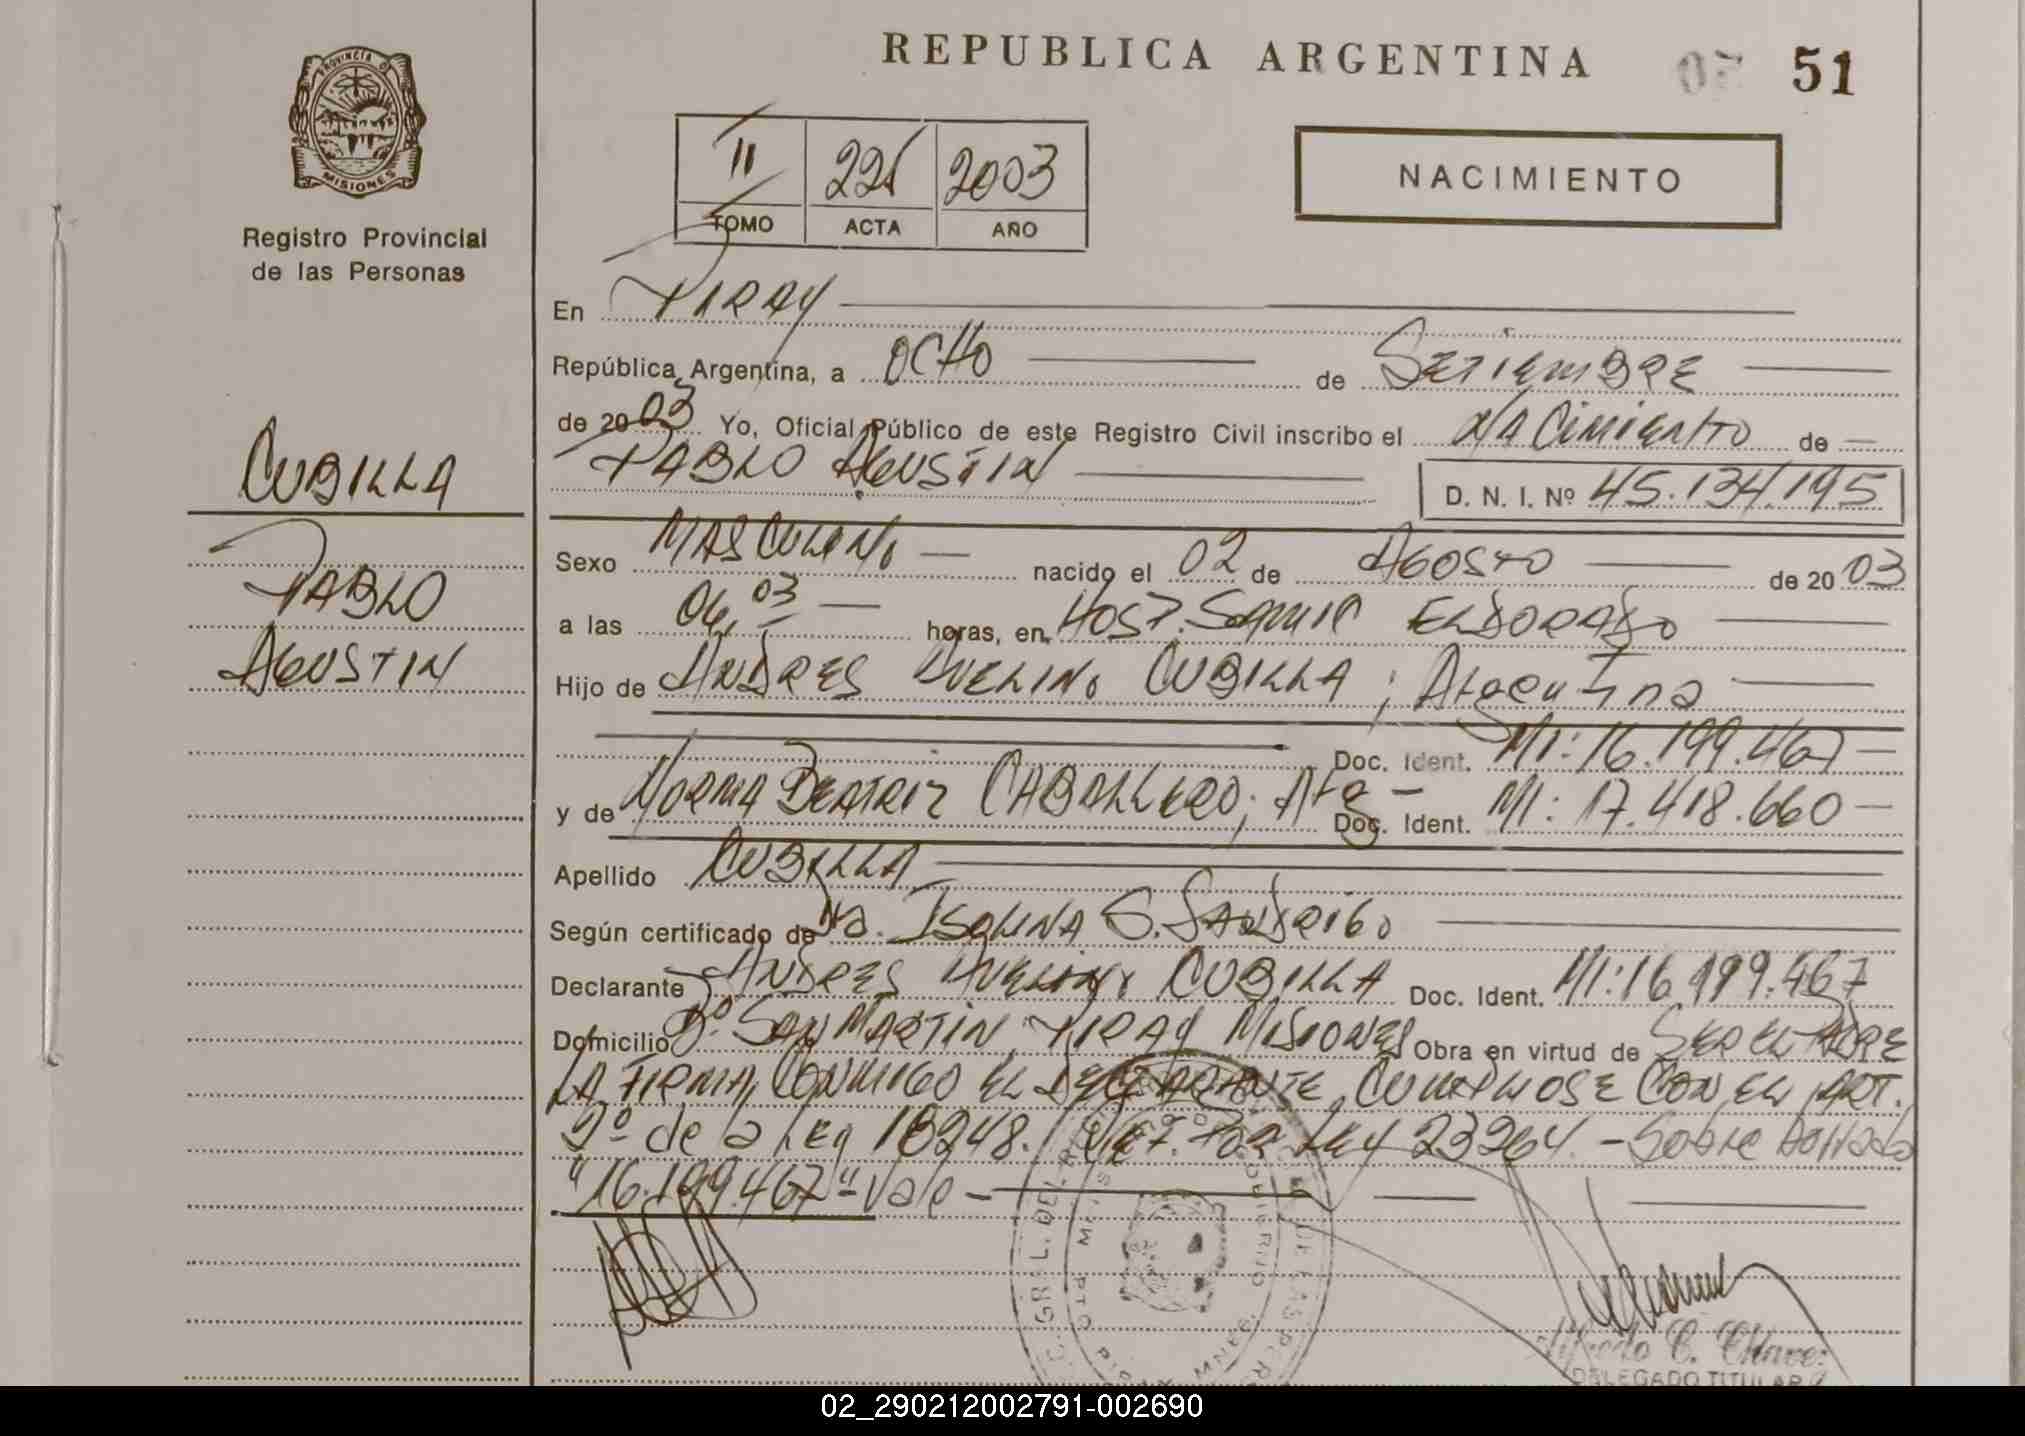 REPUBLICA ARGENTINA
07 51
PROVINCIA D
MISIONES
Registro Provincial
de las Personas
II 221 2003
TOMO ACTA AÑO
NACIMIENTO
En PIRAY
República Argentina, a OCHO de SETIEMBRE
de 2003 Yo, Oficial Público de este Registro Civil inscribo el NACIMIENTO de
PABLO AGUSTIN D. N. I. Nº 45.134.195
CUBILLA
PABLO
AGUSTIN
Sexo MASCULINO nacido el 02 de AGOSTO de 2003
a las 06,03 horas, en HOSP. SAMIC ELDORADO
Hijo de ANDRES AVELINO CUBILLA; Argentina
Doc. Ident. MI: 16.199.467
y de NORMA BEATRIZ CABALLERO; Arg - Doc. Ident. MI: 17.418.660
Apellido CUBILLA
Según certificado de ISOLINA G. SANDRIGO
Declarante ANDRES AVELINO CUBILLA Doc. Ident. MI: 16.199.467
Domicilio Bº SAN MARTIN PIRAY MISIONES Obra en virtud de SER EL PADRE
LA FIRMA CONMIGO EL DECLARANTE, CUMPLIOSE CON EL ART.
2º de la Ley 18248. Por Ley 23264. - Sobre Borrado
"16.199.467" Vale -
Alfredo C. Chavez
DELEGADO TITULAR
02_290212002791-002690